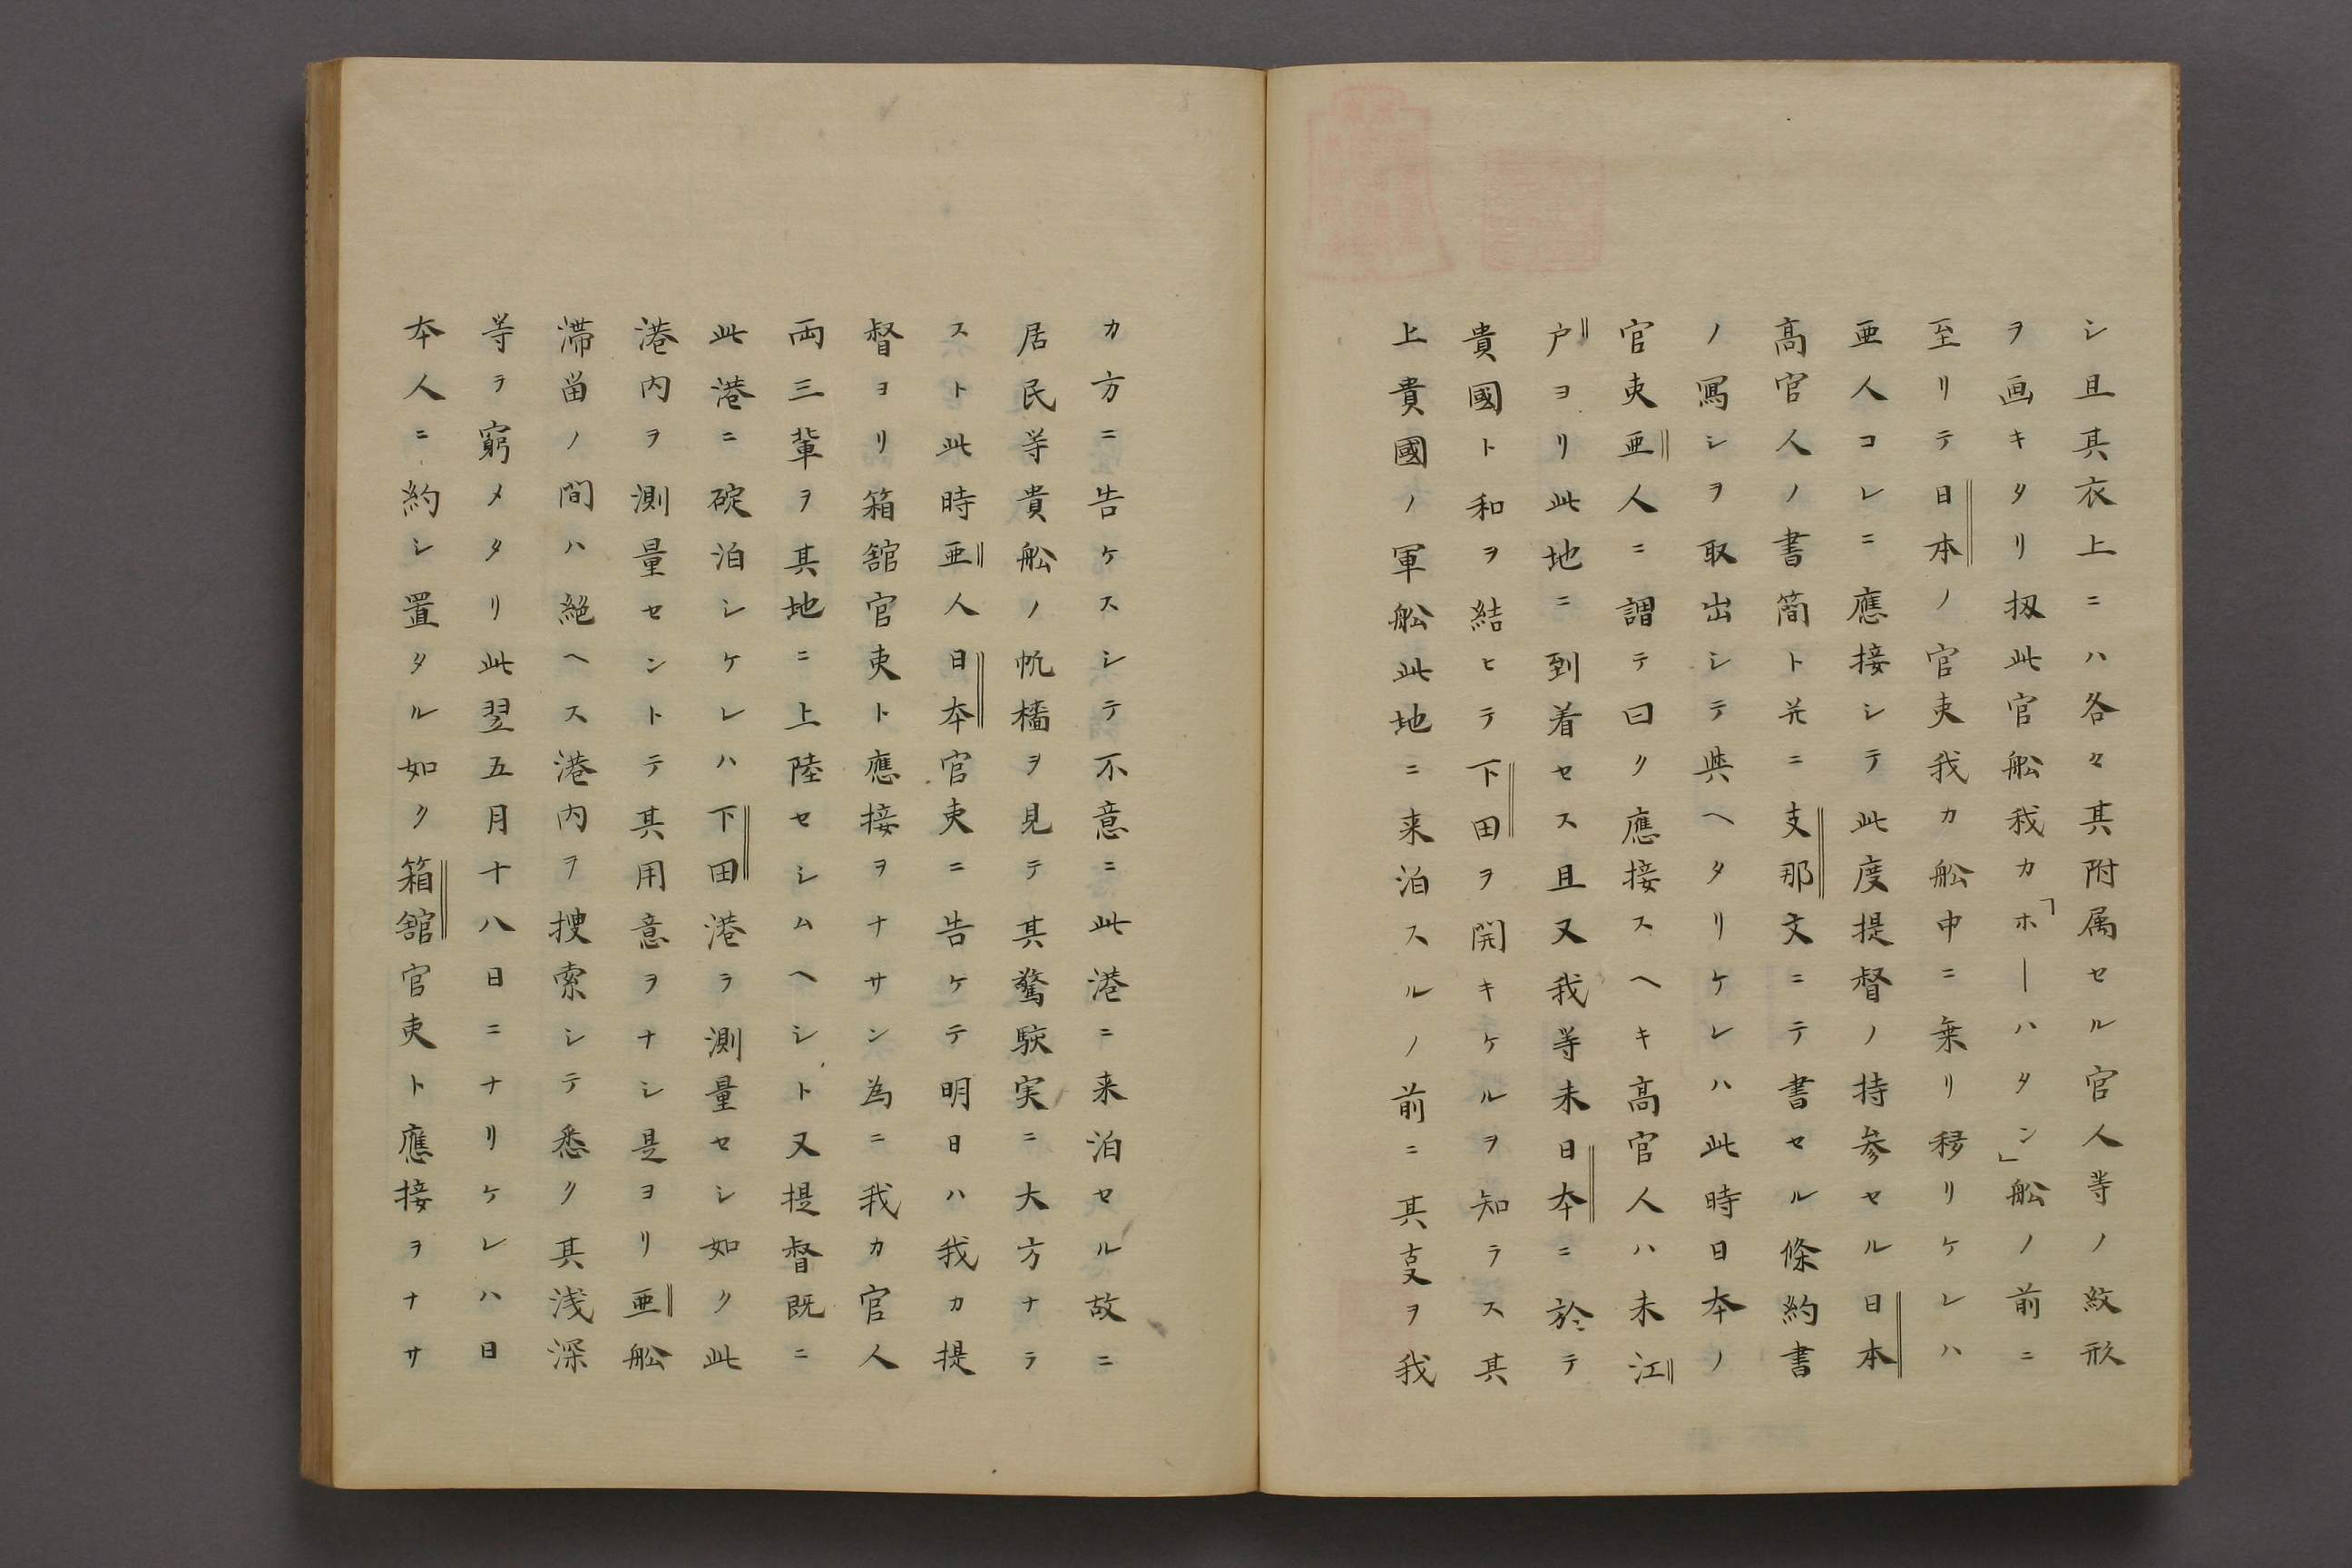 シ且其衣上ニハ各々其附属セル官人等ノ紋形
ヲ画キタリ扨此官舩我カ「ホーハタン」舩ノ前ニ
至リテ日本ノ官吏我カ舩中ニ乗リ移リケレハ
亜人コレニ應接シテ此度提督ノ持参セル日本
高官人ノ書簡ト并ニ支那文ニテ書セル條約書
ノ寫シヲ取出シテ與ヘタリケレハ此時日本ノ
官吏亜人ニ謂テ曰ク應接スヘキ高官人ハ未江
戸ヨリ此地ニ到着セス且又我等未日本ニ於テ
貴國ト和ヲ結ヒテ下田ヲ開キケルヲ知ラス其
上貴國ノ軍舩此地ニ来泊スルノ前ニ其㕝ヲ我
カ方ニ告ケスシテ不意ニ此港ニ来泊セル故ニ
居民等貴舩ノ帆檣ヲ見テ其驚駭実ニ大方ナラ
スト此時亜人日本官吏ニ告ケテ明日ハ我カ提
督ヨリ箱舘官吏ト應接ヲナサン為ニ我カ官人
両三輩ヲ其地ニ上陸セシムヘシト又提督既ニ
此港ニ碇泊シケレハ下田港ヲ測量セシ如ク此
港内ヲ測量セントテ其用意ヲナシ是ヨリ亜舩
滞畄ノ間ハ絶ヘス港内ヲ捜索シテ悉ク其浅深
等ヲ窮メタリ此翌五月十八日ニナリケレハ日
本人ニ約シ置タル如ク箱舘官吏ト應接ヲナサ